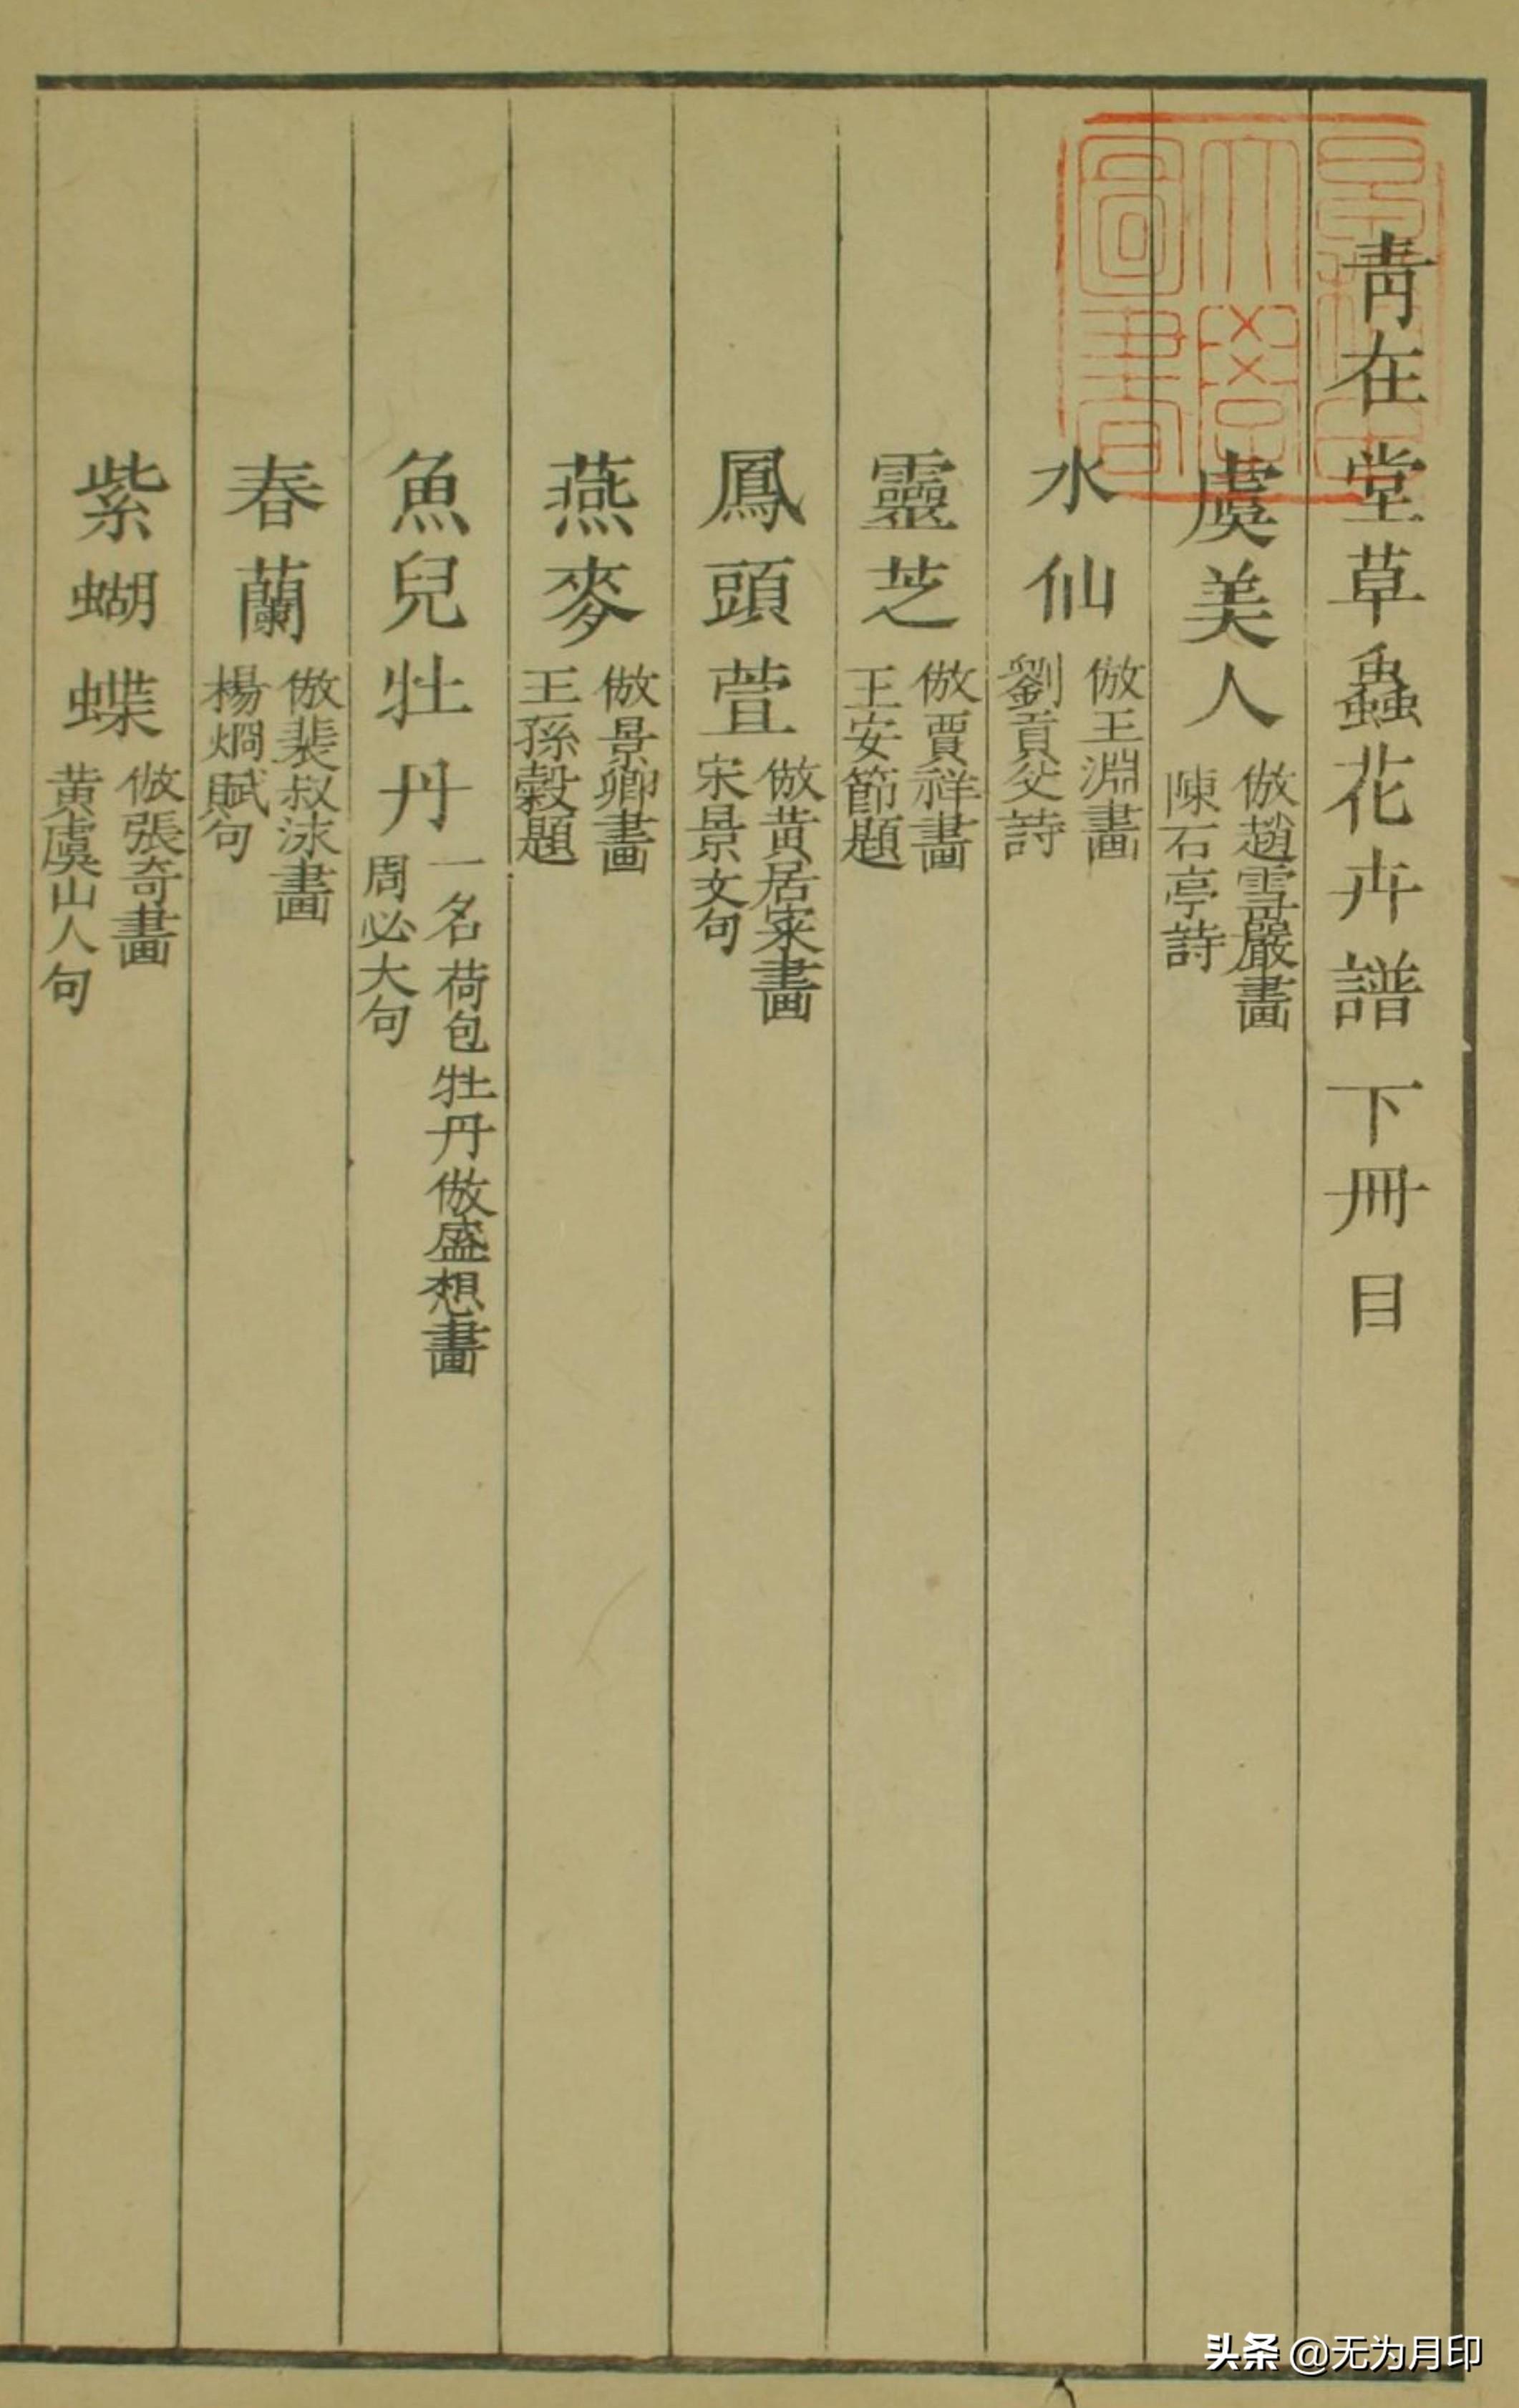 靑在堂草蟲花卉譜下冊目
虞美人 倣趙雪巖畫
陳石亭詩
水仙 倣王淵畫
劉貢父詩
靈芝 倣賈祥畫
王安節題
鳳頭萱 倣黄居寀畫
宋景文句
燕麥 倣景卿畫
王孫穀題
魚兒牡丹 一名荷包牡丹倣盛想畫
周必大句
春蘭 倣裴叔泳畫
楊烱賦句
紫蝴蝶 倣張奇畫
黄虞山人句
头条 @无为月印